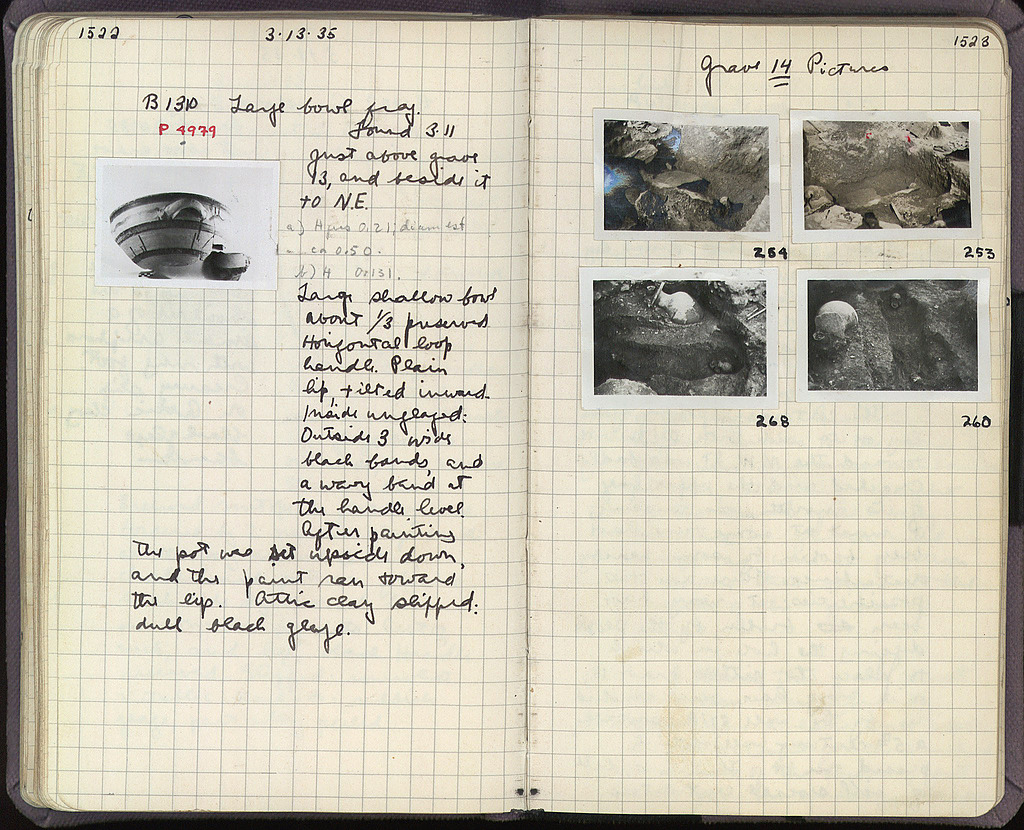 1522
3·13·35
B 1310 Large bowl frag.
P 4979
Found 3·11
just above grave
13, and beside it
to N.E.
a) H. pres 0.21; diam est
ca 0.50.
b) H 0.131.
Large shallow bowl
about 1/3 preserved
Horizontal loop
handle. Plain
lip, tilted inward.
Inside unglazed:
Outside 3 wide
black bands, and
a wavy band at
the handle level.
After painting
the pot was set upside down,
and the paint ran toward
the lip. Attic clay slipped:
dull black glaze.
1523
Grave 14 Pictures
254
253
268
260